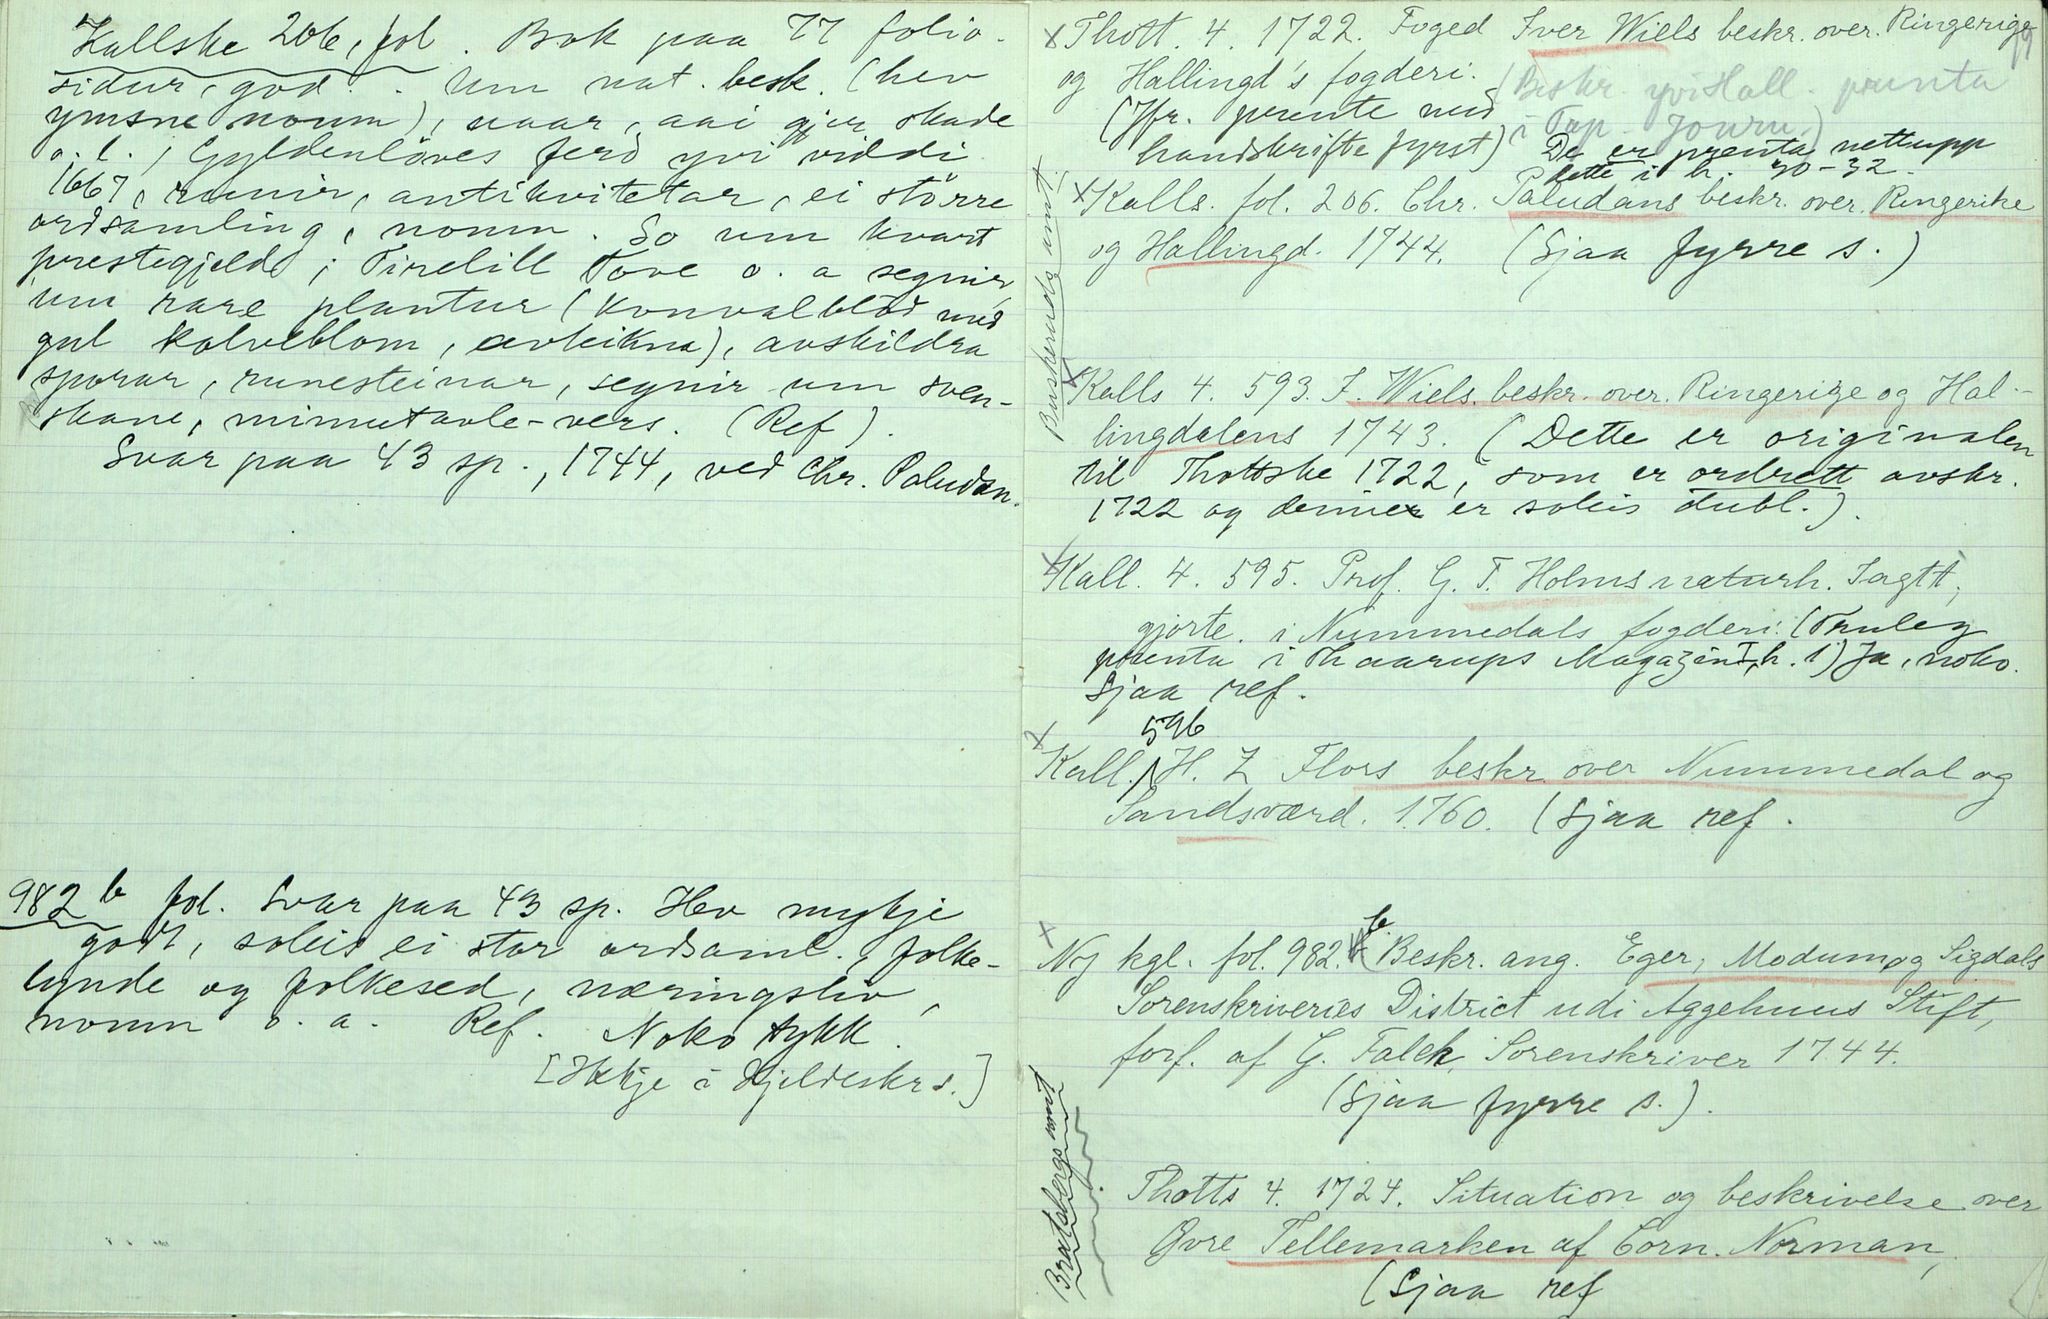 Kallske 206, fol. Bok paa 77 folio-
sidur, god. Um nat. besk. (hev
ymsne nomn), uaar, aai gjer skade
o.l., Gyldenlöves ferd yvi viddi
1667, runir, antikvitetar, ei större
ordsamling, nomn. So um kvart
prestegjeld; Tirelill Tove o. a segnir,
um rare plantur (konvalblöd med
gul kalveblom, avteikna), avskildra
sporar, runesteinar, segnir um sven-
skane, minnetavle-vers. (Ref).
Svar paa 43 sp., 1744, ved Chr. Paludan.
982 b fol. Svar paa 43 sp. Hev mykje
godt, soleis ei stor ordsaml., folke-
lynde og folkesed, næringsliv,
nomn o. a. Ref. Noko tykk.
[Ikkje i Kjeldeskr.]
x Thott. 4. 1722. Foged Iver Wiels beskr. over. Ringerige
og Hallingd's fogderi. (Beskr. yvi Hall. prenta
(Jfr. prente med i Top. Journ.)
handskrifte fyrst) De er prenta nettupp
dette i h. 30-32.
Buskeruds amt.
x Kalls. fol. 206. Chr. Paludans beskr. over. Ringerike
og Hallingd. 1744. (Sjaa fyrre s.)
x Kalls 4. 593. I. Wiels. beskr. over. Ringerige og Hal-
lingdalens 1743. (Dette er originalen
til Thottske 1722, som er ordrett avskr.
1722 og denne er soleis dubl.).
x Kall. 4. 595. Prof. G. T. Holms naturh. Iagtt,
gjorte. i Nummedals fogderi. (Truleg
prenta i Thaarups Magazin I, h. 1) Ja, noko.
Sjaa ref.
596
x Kall. H. Z Flors beskr. over Nummedal og
Sandsværd. 1760. (Sjaa ref.
x Ny kgl. fol. 982. b Beskr. ang. Eger, Modum, og Sigdals
Sorenskriveries District udi Aggehuus Stift,
forf. af G. Falck, Sorenskriver 1744.
(Sjaa fyrre s.).
Bratsbergs amt
Thotts 4. 1724. Situation og beskrivelse over
Øvre Tellemarken af Corn. Norman,
(Sjaa ref